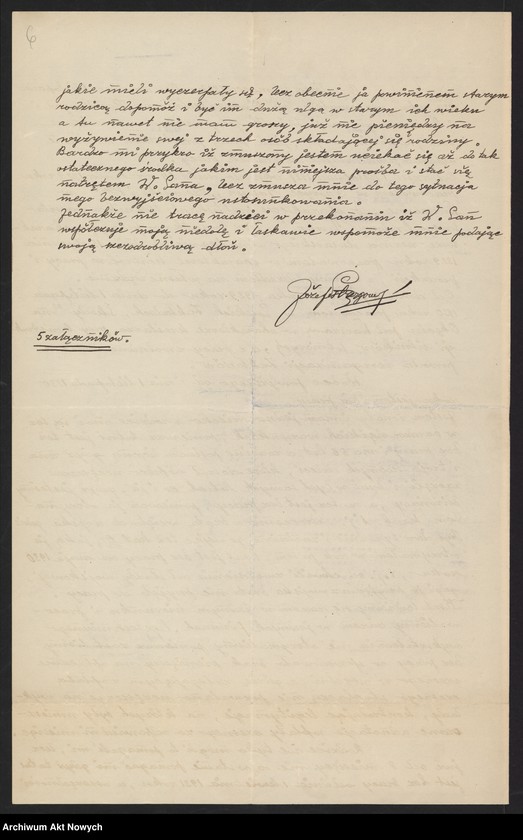 6
jakie mieli wyczerpały się, lecz obecnie ja powinienem starym
rodzicą dopomóż i być im dużą ulgą w starym ich wieku
a tu nawet nie mam groszy, już nie pieniędzy na
wyżywienie swej z trzech osób składającej się rodziny.
Bardzo mi przykro iż zmuszony jestem uciekać się aż do tak
ostatecznego środka jakim jest niniejsza prośba i stać się
natrętem W. Pana, lecz zmusza mnie do tego sytuacja
mego bezwyjściowego ustosunkowania.
Jednakże nie tracę nadzieei w przekonaniu iż W. Pan
współczuje moją niedolę i łaskawie wspomoże mnie podając
swoją szczodrobliwą dłoń.
Józef
5 załączników.
Archiwum Akt Nowych